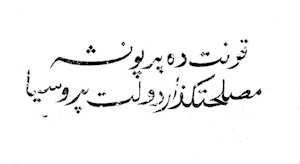 قونت ده پرپونشه
مصلحتكذار دولت پروسيا